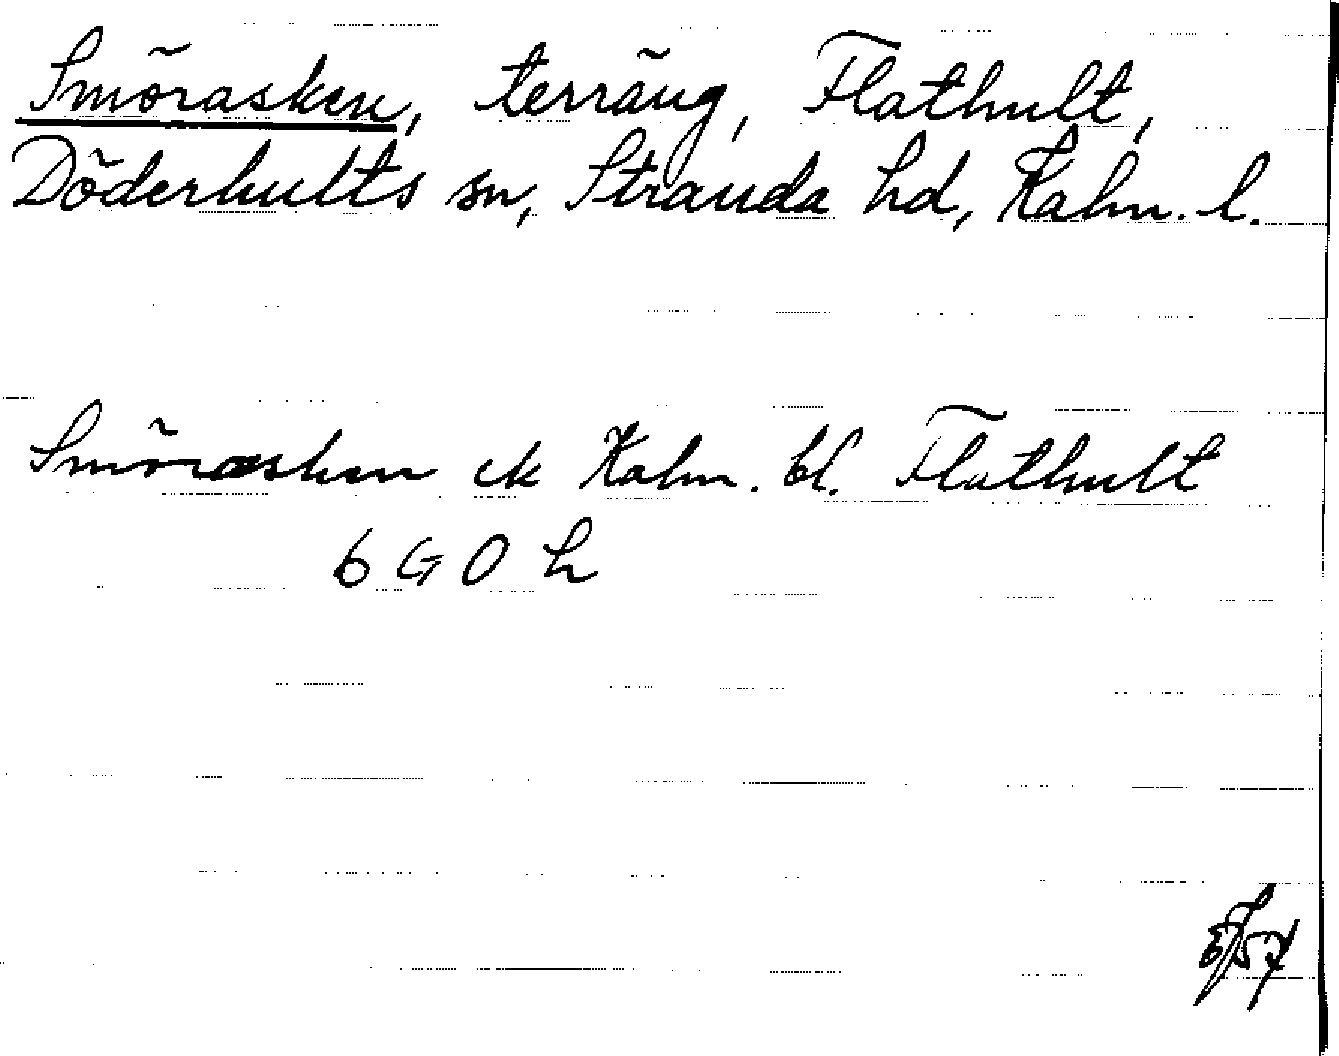 Smörasken, terräng, Flathult,
Döderhults sn, Stranda hd, Kalm. l.
Smörasken ek Kalm. bl. Flathult
6 G O h